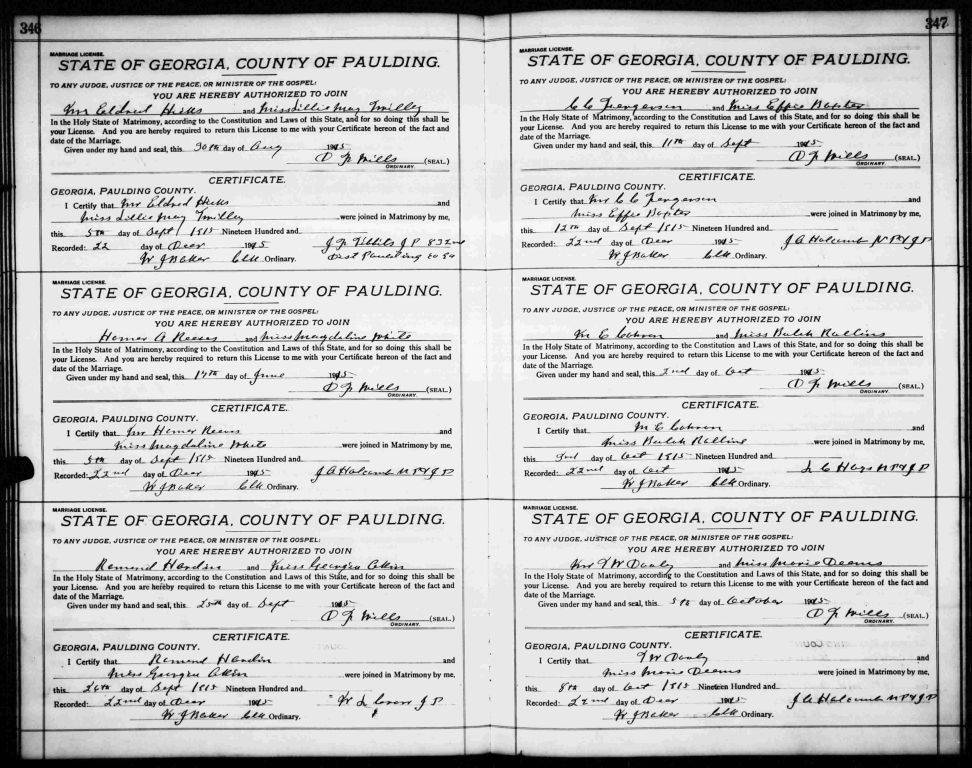 346
MARRIAGE LICENSE.
STATE OF GEORGIA, COUNTY OF PAULDING.
TO ANY JUDGE, JUSTICE OF THE PEACE, OR MINISTER OF THE GOSPEL:
YOU ARE HEREBY AUTHORIZED TO JOIN
Mr Eldred Hicks and Miss Lillie May Tmilley
In the Holy State of Matrimony, according to the Constitution and Laws of this State, and for so doing this shall be
your License. And you are hereby required to return this License to me with your Certificate hereon of the fact and
date of the Marriage.
Given under my hand and seal, this 30th day of Aug 1915
D F Wills (SEAL.)
ORDINARY.
CERTIFICATE.
GEORGIA, PAULDING COUNTY.
I Certify that Mr Eldred Hicks and
Miss Lillie May Tmilley were joined in Matrimony by me,
this 5th day of Sept 1915 Nineteen Hundred and
Recorded: 22 day of Decr 1915 J P 832nd
W J Baker Clk Ordinary. Dist Paulding Co Ga
MARRIAGE LICENSE.
STATE OF GEORGIA, COUNTY OF PAULDING.
TO ANY JUDGE, JUSTICE OF THE PEACE, OR MINISTER OF THE GOSPEL:
YOU ARE HEREBY AUTHORIZED TO JOIN
Homer A Reeves and Miss Magdaline White
In the Holy State of Matrimony, according to the Constitution and Laws of this State, and for so doing this shall be
your License. And you are hereby required to return this License to me with your Certificate hereon of the fact and
date of the Marriage.
Given under my hand and seal, this day of June 1915
D F Wills (SEAL.)
ORDINARY.
CERTIFICATE.
GEORGIA, PAULDING COUNTY.
I Certify that Mr Homer Reeves and
Miss Magdaline White were joined in Matrimony by me,
this 5th day of Sept 1915 Nineteen Hundred and
Recorded: 22nd day of Decr 1915 J A Halcomb N P & J P
W J Baker Clk Ordinary.
MARRIAGE LICENSE.
STATE OF GEORGIA, COUNTY OF PAULDING.
TO ANY JUDGE, JUSTICE OF THE PEACE, OR MINISTER OF THE GOSPEL:
YOU ARE HEREBY AUTHORIZED TO JOIN
Remend Hardin and Miss Georgia
In the Holy State of Matrimony, according to the Constitution and Laws of this State, and for so doing this shall be
your License. And you are hereby required to return this License to me with your Certificate hereon of the fact and
date of the Marriage.
Given under my hand and seal, this 25th day of Sept 1915
D F Wills (SEAL.)
ORDINARY.
CERTIFICATE.
GEORGIA, PAULDING COUNTY.
I Certify that Remend Hardin and
Miss Georgia were joined in Matrimony by me,
this 26th day of Sept 1915 Nineteen Hundred and
Recorded: 22nd day of Decr 1915 J P
W J Baker Clk Ordinary.
347
MARRIAGE LICENSE.
STATE OF GEORGIA, COUNTY OF PAULDING.
TO ANY JUDGE, JUSTICE OF THE PEACE, OR MINISTER OF THE GOSPEL:
YOU ARE HEREBY AUTHORIZED TO JOIN
C C Fergerson and Miss Effie
In the Holy State of Matrimony, according to the Constitution and Laws of this State, and for so doing this shall be
your License. And you are hereby required to return this License to me with your Certificate hereon of the fact and
date of the Marriage.
Given under my hand and seal, this 11th day of Sept 1915
D F Wills (SEAL.)
ORDINARY.
CERTIFICATE.
GEORGIA, PAULDING COUNTY.
I Certify that Mr C C Fergerson and
Miss Effie were joined in Matrimony by me,
this 12th day of Sept 1915 Nineteen Hundred and
Recorded: 22nd day of Decr 1915 J A Halcomb N P & J P
W J Baker Clk Ordinary.
MARRIAGE LICENSE.
STATE OF GEORGIA, COUNTY OF PAULDING.
TO ANY JUDGE, JUSTICE OF THE PEACE, OR MINISTER OF THE GOSPEL:
YOU ARE HEREBY AUTHORIZED TO JOIN
M C Cohran and Miss Bulah Rallins
In the Holy State of Matrimony, according to the Constitution and Laws of this State, and for so doing this shall be
your License. And you are hereby required to return this License to me with your Certificate hereon of the fact and
date of the Marriage.
Given under my hand and seal, this 2nd day of Oct 1915
D F Wills (SEAL.)
ORDINARY.
CERTIFICATE.
GEORGIA, PAULDING COUNTY.
I Certify that M C Cohran and
Miss BulahRalline were joined in Matrimony by me,
this 3rd day of Oct 1915 Nineteen Hundred and
Recorded: 22nd day of Oct 1915 C Hays N P & J P
W J Baker Clk Ordinary.
MARRIAGE LICENSE.
STATE OF GEORGIA, COUNTY OF PAULDING.
TO ANY JUDGE, JUSTICE OF THE PEACE, OR MINISTER OF THE GOSPEL:
YOU ARE HEREBY AUTHORIZED TO JOIN
Mr T W and Miss Marie Deems
In the Holy State of Matrimony, according to the Constitution and Laws of this State, and for so doing this shall be
your License. And you are hereby required to return this License to me with your Certificate hereon of the fact and
date of the Marriage.
Given under my hand and seal, this 5th day of October 1915
D F Wills (SEAL.)
ORDINARY.
CERTIFICATE.
GEORGIA, PAULDING COUNTY.
I Certify that T W and
Miss Marie Deems were joined in Matrimony by me,
this 8th day of Oct 1915 Nineteen Hundred and
Recorded: 22nd day of Decr 1915 J A Halcomb N P & J P
W J Baker Clk Ordinary.